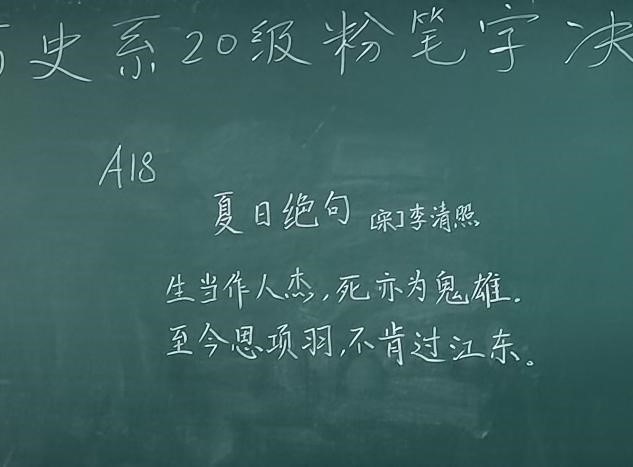 史系20级粉笔字决
A18
夏日绝句 [宋]李清照
生当作人杰,死亦为鬼雄.
至今思项羽,不肯过江东。